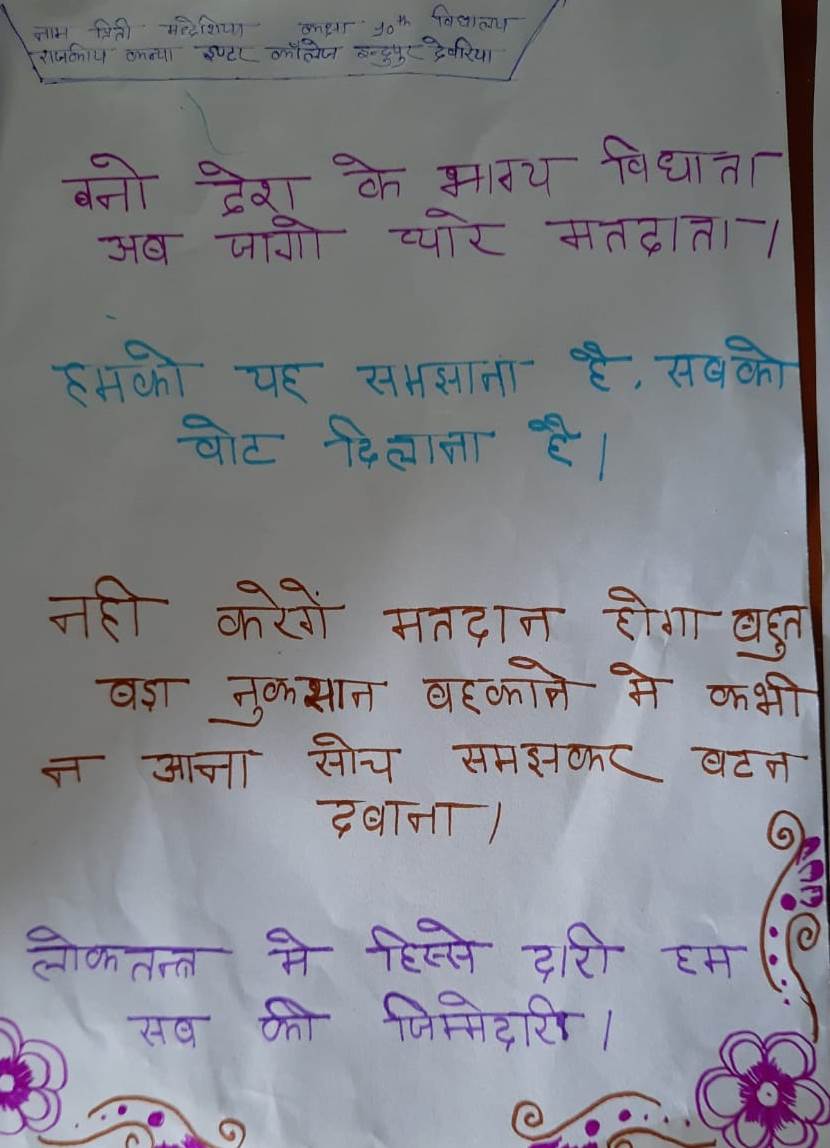 नाम प्रिती मद्देशिया कक्षा 10th विद्यालय
राजकीय कन्या इण्टर कॉलेज इन्दुपुर देवरिया
बनो देश के भाग्य विधाता
अब जागो प्यारे मतदाता।
हमको यह समझाना है, सबको
वोट दिलाना है।
नही करेगें मतदान होगा बहुत
बड़ा नुकसान बहकाने मे कभी
न आना सोच समझकर बटन
दबाना।
लोकतन्त्र मे हिस्से दारी हम
सब की जिम्मेदारी।